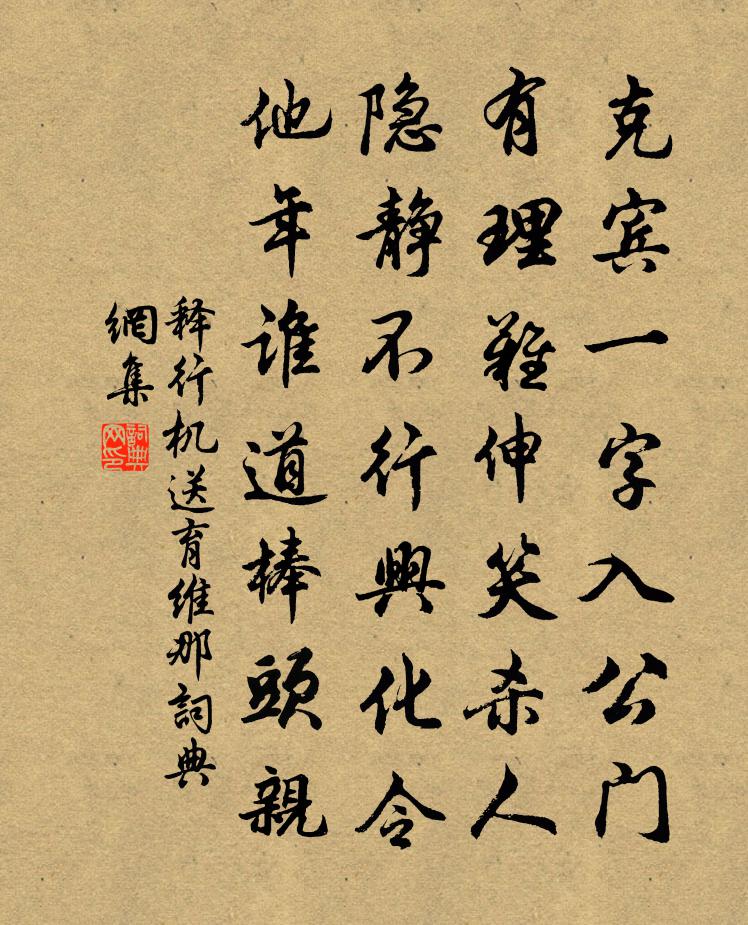 克宾一字入公门
有理難伸笑杀人
隐静不行興化令
他年谁道棒頭親
释行机送育维那詞典
網集
詞典网印